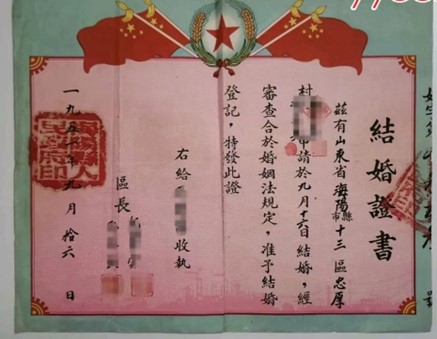 結婚證書
茲有山東省海陽市縣十三區忠厚
村
申請於九月十六日結婚，經
審查合於婚姻法規定，准予結婚
登記，特發此證
右給
收執
區長
一九五一年九月拾六日